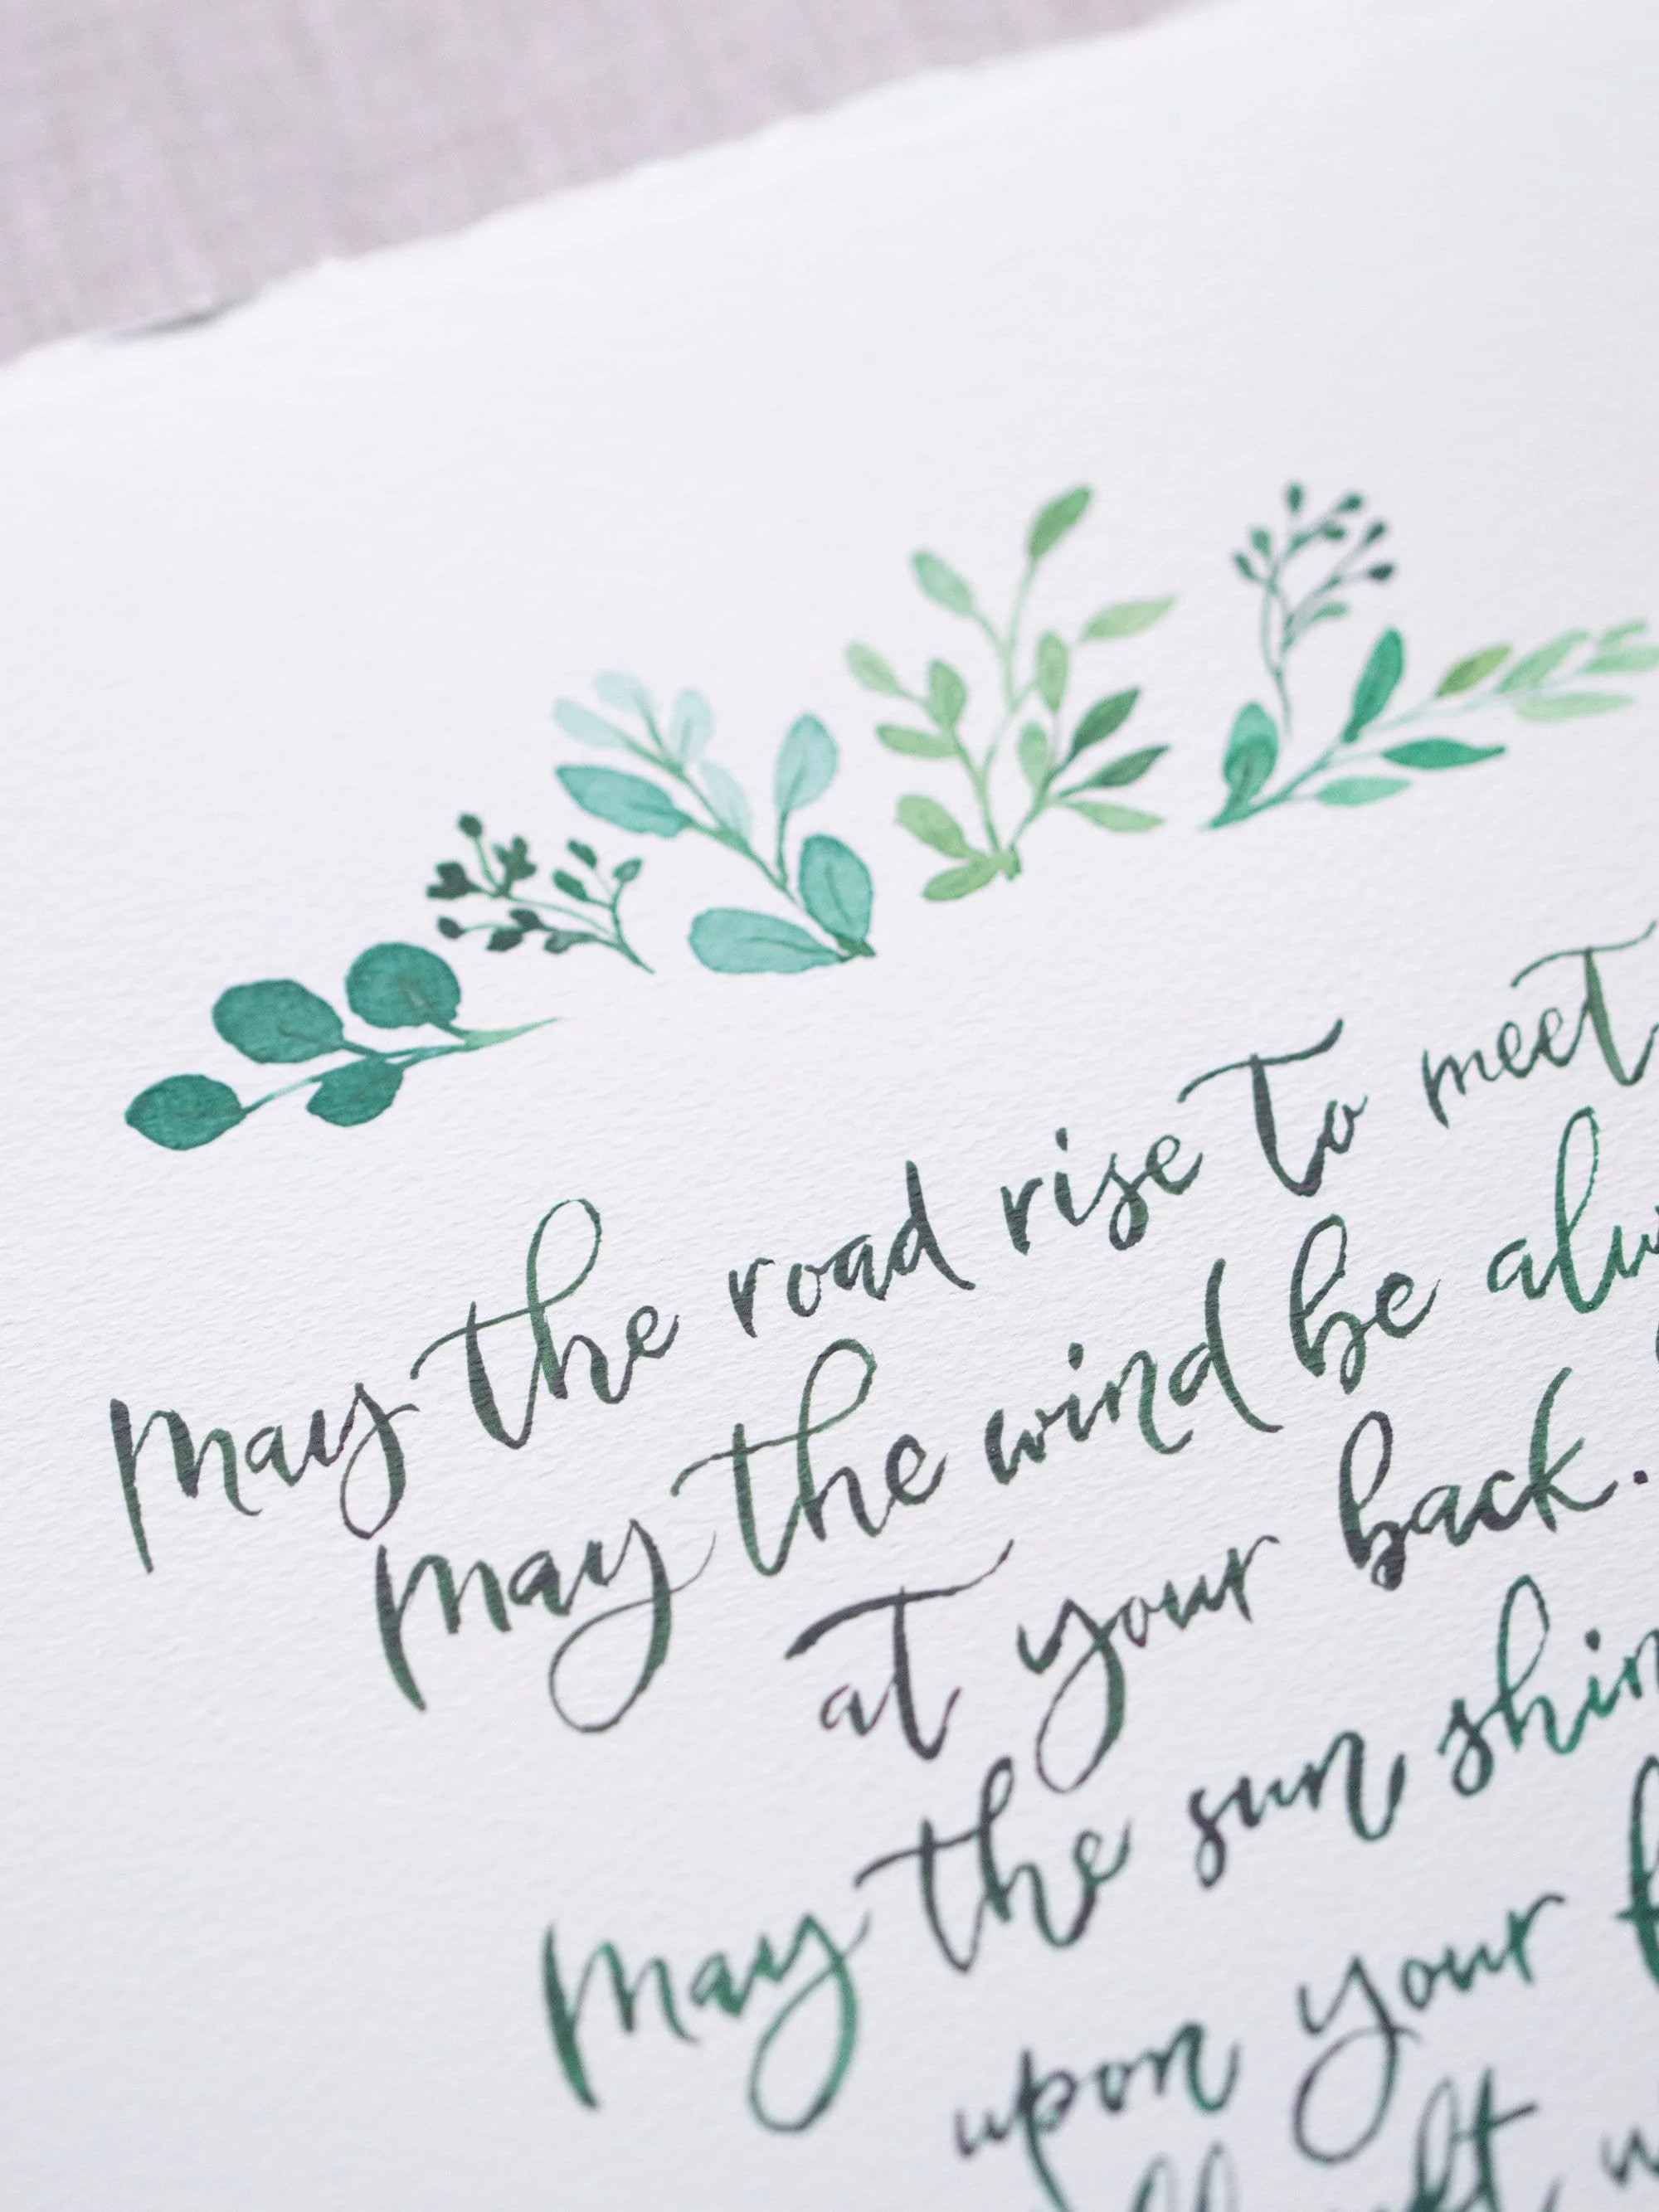 May the road rise to meet
May the wind be alw
at your back.
May the sun shin
upon your f